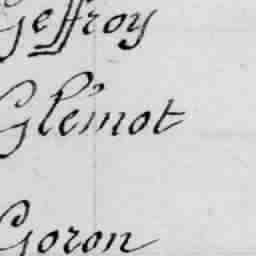 Geffroy
Glémot
Goron